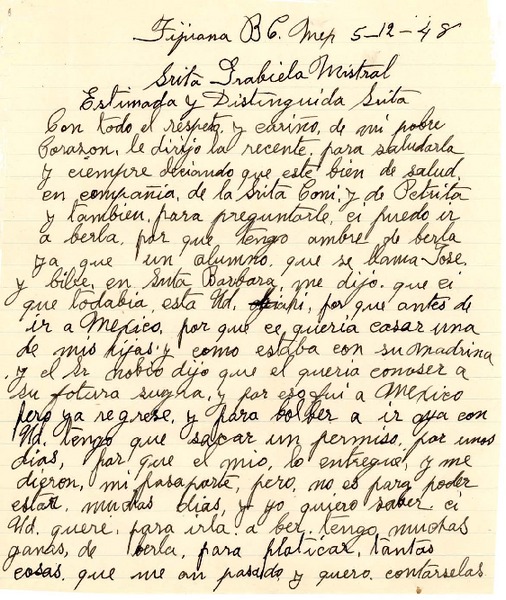 Tijuana B C. Mep 5-12-48
Srita Grabiela Mistral
Estimada y Distinguida Srita
Con todo el respeto, y cariño, de mi pobre
Corazon, le dirijo la recente, para saludarla
y ciempre deciando que esté bien de salud,
en compañia, de la Srita Coni, y de Petrita
y tambien, para preguntarle, ci puedo ir
a berla, por que tengo ambre de berla
ya que un alumno, que se llama Jose,
y bibe, en Snta Barbara, me dijo. que ci
que todabia esta Ud. aqui, por que antes de
ir a Mexico, por que ce queria casar una
de mis hijas y como estaba con su madrina
y el Sr nobio dijo que el queria conoser a
su fotura sugra, y por eso fui a Mexico
pero ya regrese, y para bolber a ir aya con
Ud. tengo que sacar un permiso, por unos
dias, por que el mio, lo entregué, y me
dieron, mi pasaporte, pero, no es para poder
estar, muchas dias, y yo quiero saber, ci
Ud. quere, para irla. a ber, tengo muchas
ganas, de berla, para platicar, tantas
cosas. que me an pasado y quero. contarselas.